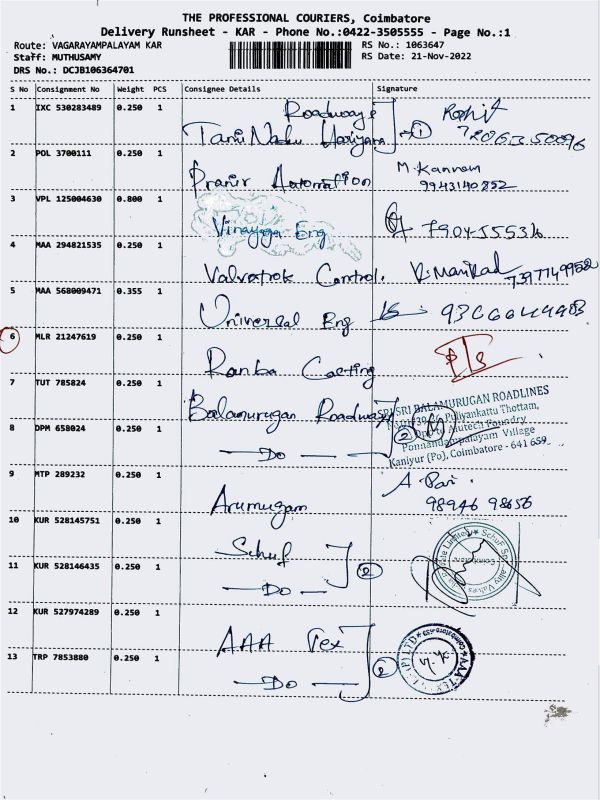 THE PROFESSIONAL COURIERS, Coimbatore
Delivery Runsheet - KAR - Phone No.:0422-3505555 - Page No.:1
Route: VAGARAYAMPALAYAM KAR RS No.: 1063647
Staff: MUTHUSAMY RS Date: 21-Nov-2022
DRS No.: DCJB106364701
S No Consignment No Weight PCS Consignee Details Signature
1 IXC 530283489 0.250 1 Roadways Rohit
Tamil Nadu Hariyana 1
2 POL 3700111 0.250 1 Pranir Automation M. Kannan
9943140852
3 VPL 125004630 0.800 1 Vinayaga Eng
4 MAA 294821535 0.250 1 Control.
5 MAA 568009471 0.355 1 Universal Eng
6 MLR 21247619 0.250 1
7 TUT 785824 0.250 1 Balamurugan Roadways
SRI BALAMURUGAN ROADLINES
Puliyankattu Thottam,
Foundry
Ponnandampalayam Village
Kaniyur (Po), Coimbatore - 641 659.
8 DPM 658024 0.250 1 - Do - 2
9 MTP 289232 0.250 1 Arumugam
98946 98656
10 KUR 528145751 0.250 1 Schuf
11 KUR 528146435 0.250 1 - Do - 2
12 KUR 527974289 0.250 1 AAA Tex
13 TRP 7853880 0.250 1 - Do - 2